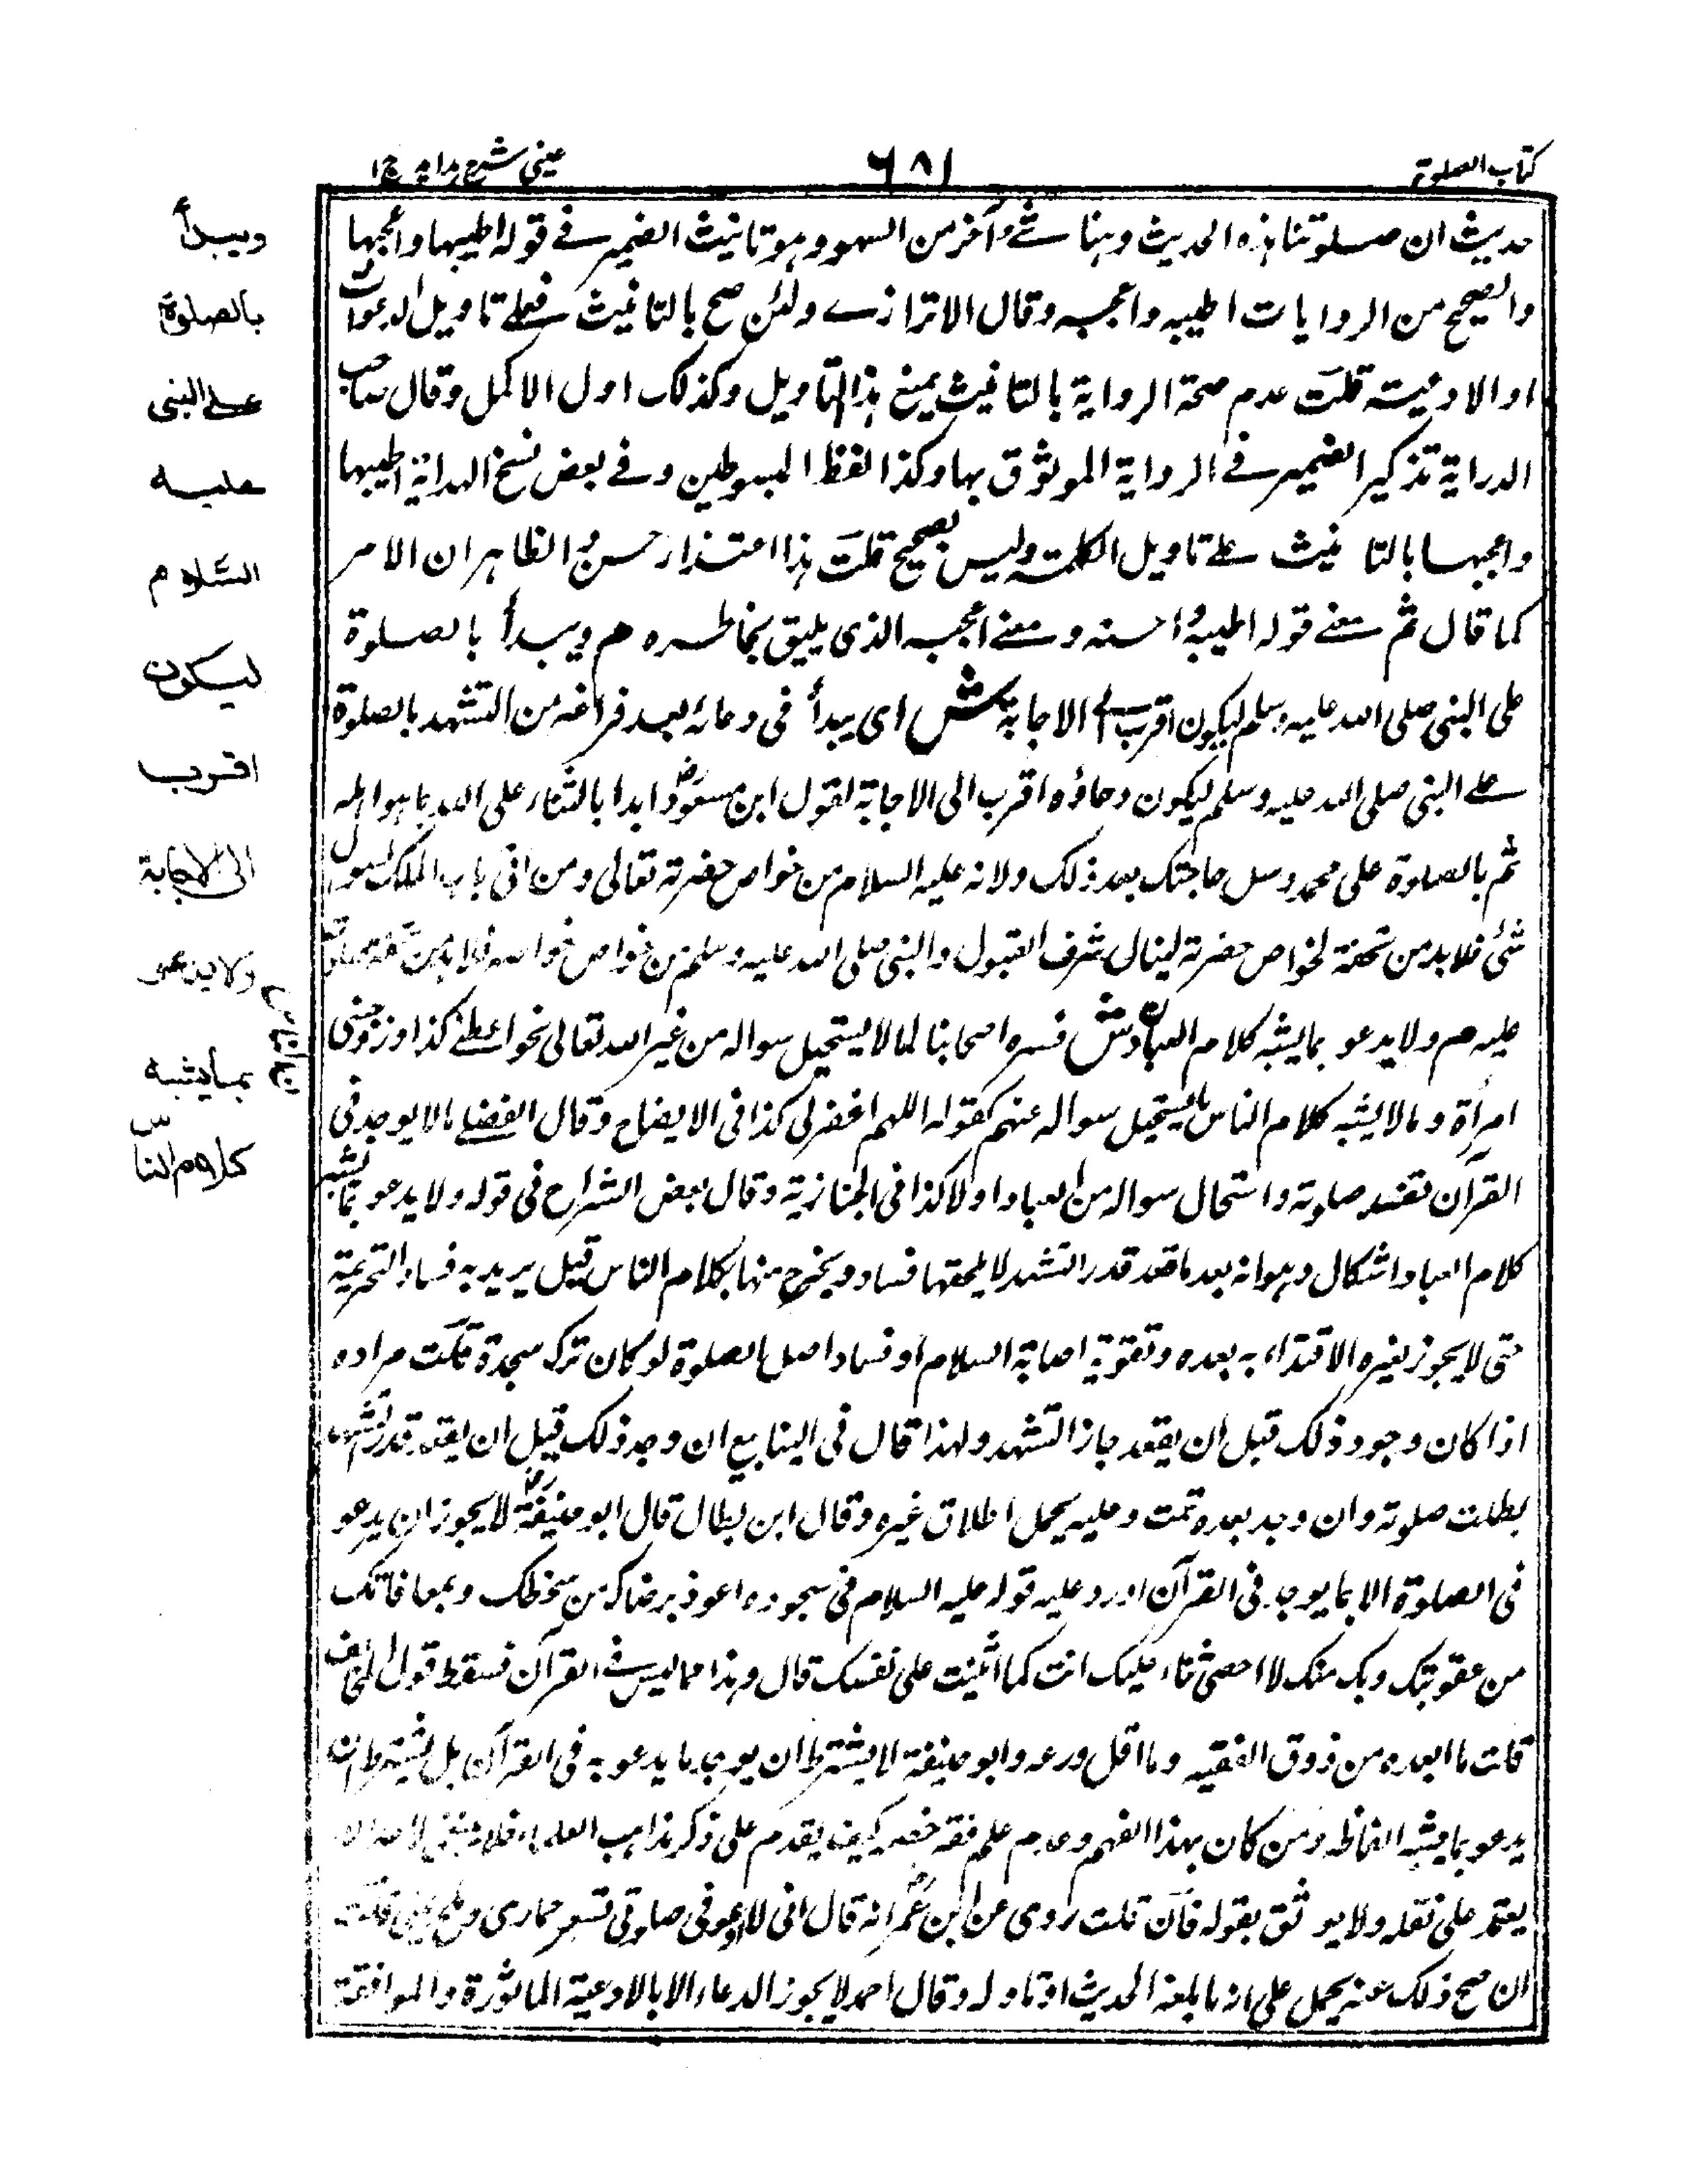 كتاب الصلوة
٦٨١
عينى شرح هدايه ج ١
حديث ان صلوتنا هذه الحديث وهنا شئ آخر من السهو وهو تانيث الضمير فے قوله اطيبها واعجبها
والصحيح من الروايات اطيبه واعجبه وقال الاترازے ولئن صح بالتانيث فعلے تاويل الدعوات
او الادعية قلت عدم صحة الرواية بالتانيث يمنع هذا التاويل وكذلك اول الاكمل وقال صاحب
الدراية تذكير الضمير فے الرواية الموثوق بها وكذا لفظ المبسوطين وفے بعض نسخ الهداية اطيبها
واعجبها بالتانيث علے تاويل الكلمة وليس بصحيح قلت هذا اعتذار حسن والظاهر ان الامر
كما قال ثم معنے قوله اطيبه احسنه ومعنے اعجبه الذى يليق بخاطره م ويبدأ بالصلوة
على النبى صلى الله عليه وسلم ليكون اقرب الے الاجابة ش اى يبدأ فى دعائه بعد فراغه من التشهد بالصلوة
علے النبى صلى الله عليه وسلم ليكون دعاؤه اقرب الى الاجابة لقول ابن مسعودؓ ابدا بالثناء على الله بما هو اهله
ثم بالصلوة على محمد وسل حاجتك بعد ذلك ولانه عليه السلام من خواص حضرته تعالى ومن اتى باب الملك لسول
شئ فلا بد من تحفة لخواص حضرته لينال شرف القبول والنبى صلى الله عليه وسلم من خواص خواصه فلا بد من تحفة صلوة
عليه م ولا يدعو بما يشبه كلام العباد ش فسره اصحابنا لما لا يستحيل سواله من غير الله تعالى نحو اعطنے كذا او زوجنى
امرأة وما لا يشبه كلام الناس ما يستحيل سواله عنهم كقوله اللهم اغفر لى كذا فى الايضاح وقال الفضلے ما لا يوجد فى
القرآن تفسد صلوته واستحال سواله من العباد او لا كذا فى الجنازية وقال بعض الشراح فى قوله ولا يدعو بما يشبه
كلام العباد اشكال وهو انه بعد ما قعد قدر التشهد لا يلحقها فساد ويخرج منها بكلام الناس قيل يريد به فساد التحريمة
حتى لا يجوز لغيره الاقتداء به بعده وتفوية اصابة السلام او فساد اصل الصلوة لو كان ترك سجدة قلت مراده
اذا كان وجود ذلك قبل ان يقعد جاز التشهد ولهذا قال فى الينابيع ان وجد ذلك قبل ان يقعد قدر التشهد
بطلت صلوته وان وجد بعده تمت وعليه يحمل اطلاق غيره وقال ابن بطال قال ابو حنيفةؒ لا يجوز ان يدعو
فى الصلوة الا بما يوجد فى القرآن اورد عليه قوله عليه السلام فى سجوده اعوذ برضاك من سخطك وبمعافاتك
من عقوبتك وبك منك لا احصى ثناء عليك انت كما اثنيت على نفسك قال وهذا مما ليس فے القرآن فسقط قول المخالف
قلت ما ابعده من ذوق الفقيه وما اقل ورعه وابو حنيفة لا يشترط ان يوجد ما يدعو به فى القرآن بل يشترط ان
يدعو بما يشبه الفاظه ومن كان بهذا الفهم وعدم علم فقه خصمه كيف يقدم على ذكر مذاهب العلماء فلا ينبغى لاحد ان
يعتمد على نقله ولا يوثق بقوله فان قلت روى عن ابن عمرؓ انه قال انى لادعو فى صلوتى لشعير حمارى وملح بيتى قلت
ان صح ذلك عنه يحمل على انه ما بلغه الحديث او تاوله وقال احمد لا يجوز الدعاء الا بالادعية الماثورة والموافقة
ويبدأ
بالصلوة
علے النبى
عليه
السّلام
ليكون
اقرب
الى الاجابة
ولا يدعو
بما يشبه
كلام الناس